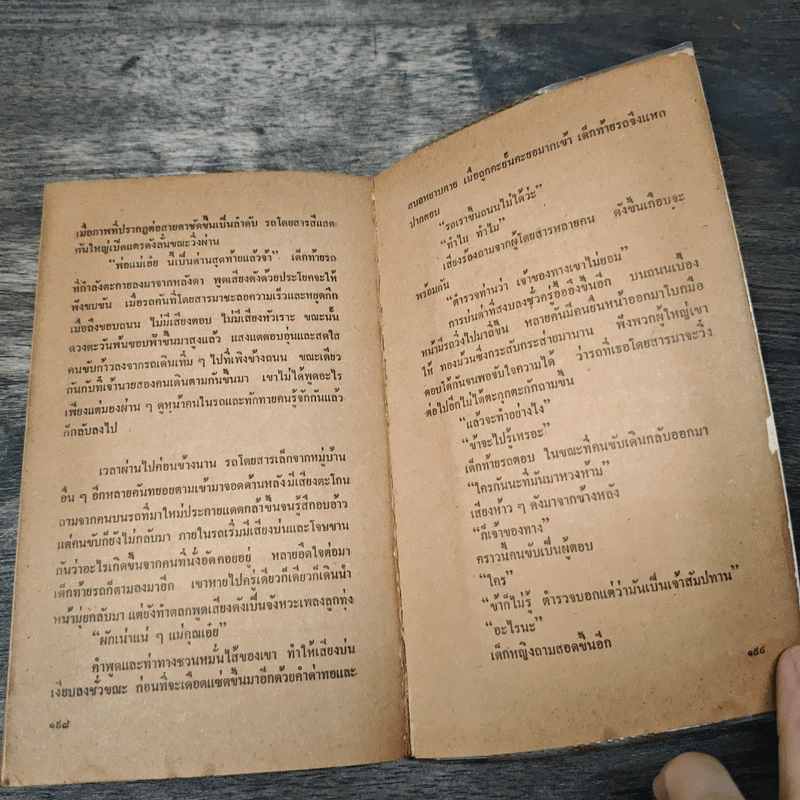 เมื่อภาพที่ปรากฏต่อสายตาชัดขึ้นเป็นลำดับ รถโดยสารสีแสด
คันใหญ่เปิดแตรดังลั่นขณะวิ่งผ่าน
“พ่อแม่เอ๊ย นี่เป็นด่านสุดท้ายแล้วจ้า” เด็กท้ายรถ
ที่กำลังตะกายลงมาจากหลังคา พูดเสียงดังด้วยประโยคจะให้
พึงขบขัน เมื่อรถคันที่โดยสารมาชะลอความเร็วและหยุดกึก
เมื่อถึงขอบถนน ไม่มีเสียงตอบ ไม่มีเสียงหัวเราะ ขณะนั้น
ดวงตะวันพ้นขอบฟ้าขึ้นมาสูงแล้ว แสงแดดอบอุ่นและสดใส
คนขับก้าวลงจากรถเดินทื่ม ๆ ไปที่เพิงข้างถนน ขณะเดียว
กันกับที่เจ้านายสองคนเดินตามกันขึ้นมา เขาไม่ได้พูดอะไร
เพียงแต่มองผ่าน ๆ ดูหน้าคนในรถและทักทายคนรู้จักกันแล้ว
ก็กลับลงไป
เวลาผ่านไปค่อนข้างนาน รถโดยสารเล็กจากหมู่บ้าน
อื่น ๆ อีกหลายคันทยอยตามเข้ามาจอดด้านหลัง มีเสียงตะโกน
ถามจากคนบนรถที่มาใหม่ประกายแดดกล้าขึ้นจนรู้สึกอบอ้าว
แต่คนขับก็ยังไม่กลับมา ภายในรถเริ่มมีเสียงบ่นและโจษขาน
กันว่าอะไรเกิดขึ้นจากคนที่นั่งอัดคอยอยู่ หลายอึดใจต่อมา
เด็กท้ายรถก็ตามลงมาอีก เขาหายไปครู่เดียวก็เดียวก็เดินนำ
หน้ามุ่ยกลับมา แต่ยังทำตลกพูดเสียงดังเป็นจังหวะเพลงลูกทุ่ง
“ผักเน่าแน่ ๆ แม่คุณเอ๋ย”
คำพูดและท่าทางชวนหมั่นไส้ของเขา ทำให้เสียงบ่น
เงียบลงชั่วขณะ ก่อนที่จะเดือดแซ่ดขึ้นมาอีกด้วยคำด่าทอและ
๑๕๘
สบถหยาบคาย เมื่อถูกคะยั้นคะยอมากเข้า เด็กท้ายรถจึงแหก
ปากตอบ
“รถเราขึ้นถนนไม่ได้ว่ะ”
“ทำไม ทำไม”
เสียงร้องถามจากผู้โดยสารหลายคน ดังขึ้นเกือบจะ
พร้อมกัน
“ตำรวจท่านว่า เจ้าของทางเขาไม่ยอม”
การบ่นด่าที่สงบลงชั่วครู่อื้ออึงขึ้นอีก บนถนนเบื้อง
หน้ามีรถวิ่งไปมาถี่ขึ้น หลายคันมีคนยื่นหน้าออกมาโบกมือ
ให้ ทองม้วนซึ่งกระสับกระส่ายมานาน ฟังพวกผู้ใหญ่เขา
ตอบโต้กันจนพอจับใจความได้ ว่ารถที่เธอโดยสารมาจะวิ่ง
ต่อไปอีกไม่ได้ตะกุกตะกักถามขึ้น
“แล้วจะทำอย่างไง”
“ข้าจะไปรู้เหรอะ”
เด็กท้ายรถตอบ ในขณะที่คนขับเดินกลับออกมา
“ใครกันนะที่มันมาหวงห้าม”
เสียงห้าว ๆ ดังมาจากข้างหลัง
“ก็เจ้าของทาง”
คราวนี้คนขับเป็นผู้ตอบ
“ใคร”
“ข้าก็ไม่รู้ ตำรวจบอกแต่ว่ามันเป็นเจ้าสัมปทาน”
“อะไรนะ”
เด็กหญิงถามสอดขึ้นอีก
๑๕๙